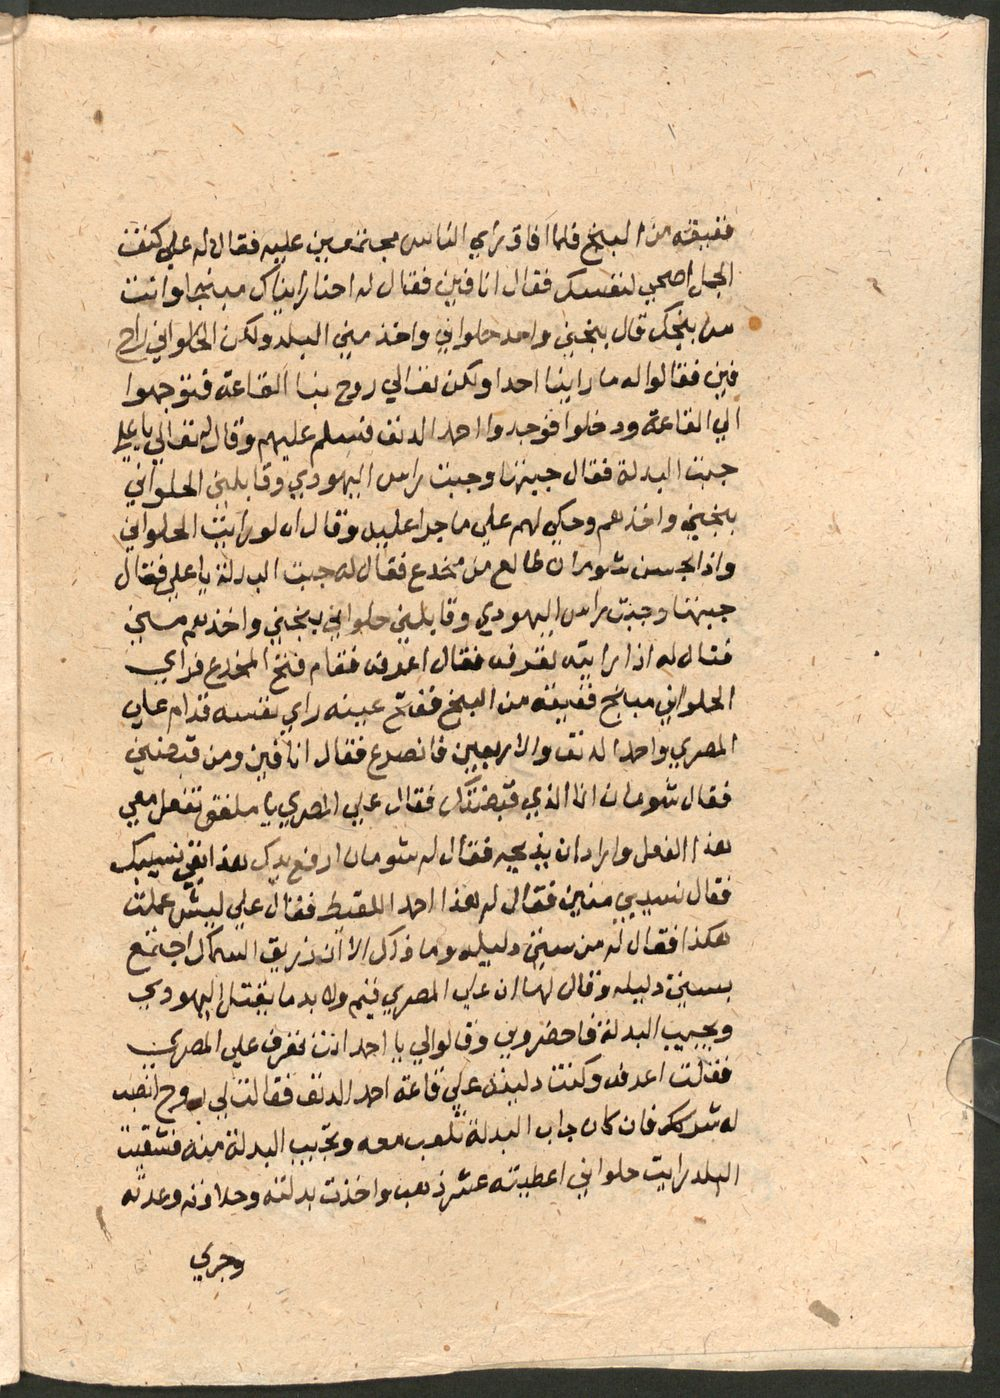 ففيقه من البنج فلما افاق راي الناس مجتمعين عليه فقال له علي كتف
الجمل اصحي لنفسك فقال انا فين فقال له احنا رايناك مبنجا وانت
من بنجك قال بنجني واحد حلواني واخذ مني البدله ولكن الحلواني راح
فين فقالوا له ما راينا احدا ولكن تعالي روح بنا القاعة فتوجهوا
الي القاعة ودخلوا فوجدوا احمد الدنف فسلم عليهم وقال له تعالي يا علي
جبت البدلة فقال جبتها وجبت راس اليهودي وقابلني الحلواني
بنجني واخذهم وحكي لهم علي ما جرا عليه وقال له لو رايت الحلواني
واذا بحسن شومان طالع من مخدع فقال له جبت البدلة يا علي فقال
جبتها وجبت راس اليهودي وقابلني حلواني بنجني واخذهم مني
فقال له اذا رايته تعرفه فقال اعرفه فقام فتح المخدع فراي
الحلواني مبنج ففيقه من البنج ففتح عينه راي نفسه قدام علي
المصري واحمد الدنف والاربعين فانصرع فقال انا فين ومن قبضني
فقال شومان انا الذي قبضتك فقال علي المصري يا ملفق تفعل معي
هذا الفعل واراد ان يذبحه فقال له شومان ارفع يدك هذا بقي نسيبك
فقال نسيبي منين فقال له هذا احمد اللقيط فقال علي ليش عملت
هكذا فقال له من ستي دليله وما ذاك الا ان زريق السماك اجتمع
بستي دليله وقال لها ان علي المصري فهم ولا بد ما يقتل اليهودي
ويجيب البدلة فاحضروني وقالوا لي يا احمد انت تعرف علي المصري
فقلت اعرفه وكنت دليته علي قاعة احمد الدنف فقالت لي روح انصب
له شركك فان كان جاب البدلة تلعب معه وتجيب البدلة منه فشقيت
البلد رايت حلواني اعطيته عشر ذهب واخذت بدلته وحلاوته وعدته
وجري